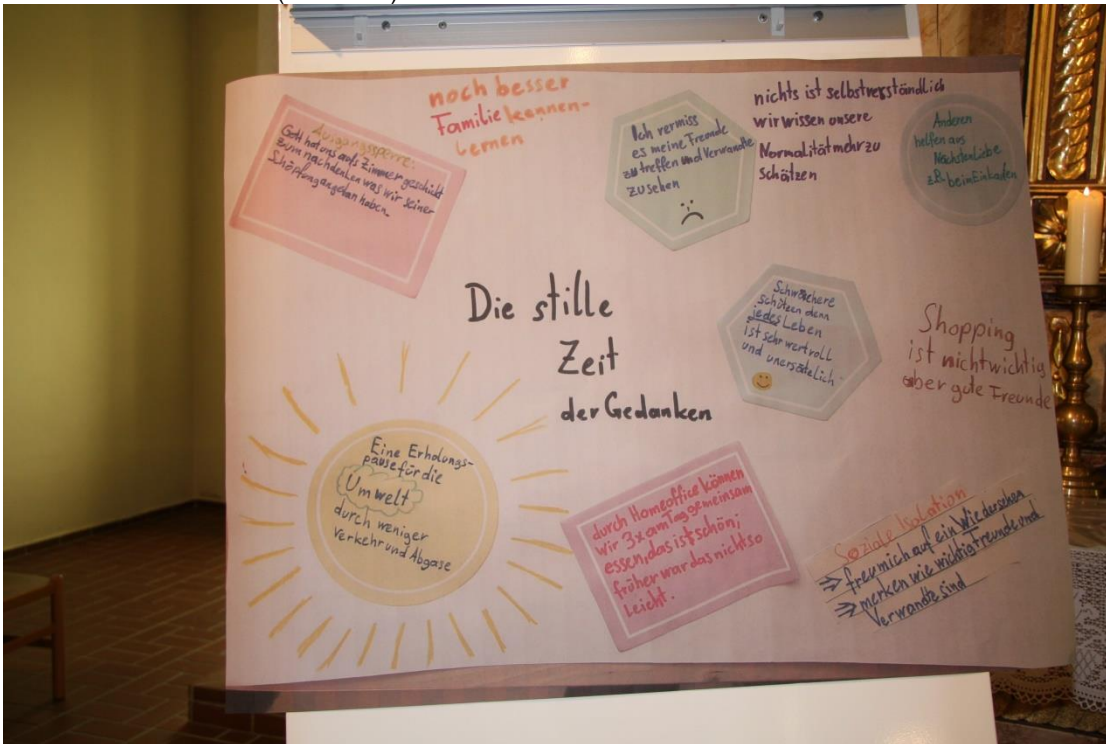 noch besser
Familie kennen-
lernen
Ausgangssperre:
Gott hat uns aufs Zimmer geschickt
zum nachdenken was wir seiner
Schöpfung angetan haben.
Ich vermiss
es meine Freunde
zu treffen und Verwandte
zu sehen
nichts ist selbstverständlich
wir wissen unsere
Normalität mehr zu
schätzen
Anderen
helfen aus
Nächstenliebe
z.B. beim Einkaufen
Die stille
Zeit
der Gedanken
Schwächere
schützen denn
jedes Leben
ist sehr wertvoll
und unersetzlich
Shopping
ist nicht wichtig
aber gute Freunde
Eine Erholungs-
pause für die
Umwelt
durch weniger
Verkehr und Abgase
durch Homeoffice können
wir 3x am Tag gemeinsam
essen, das ist schön,
früher war das nicht so
leicht.
Soziale Isolation
⇒ freu mich auf ein Wiedersehen
⇒ merken wie wichtig Freunde und
Verwandte sind